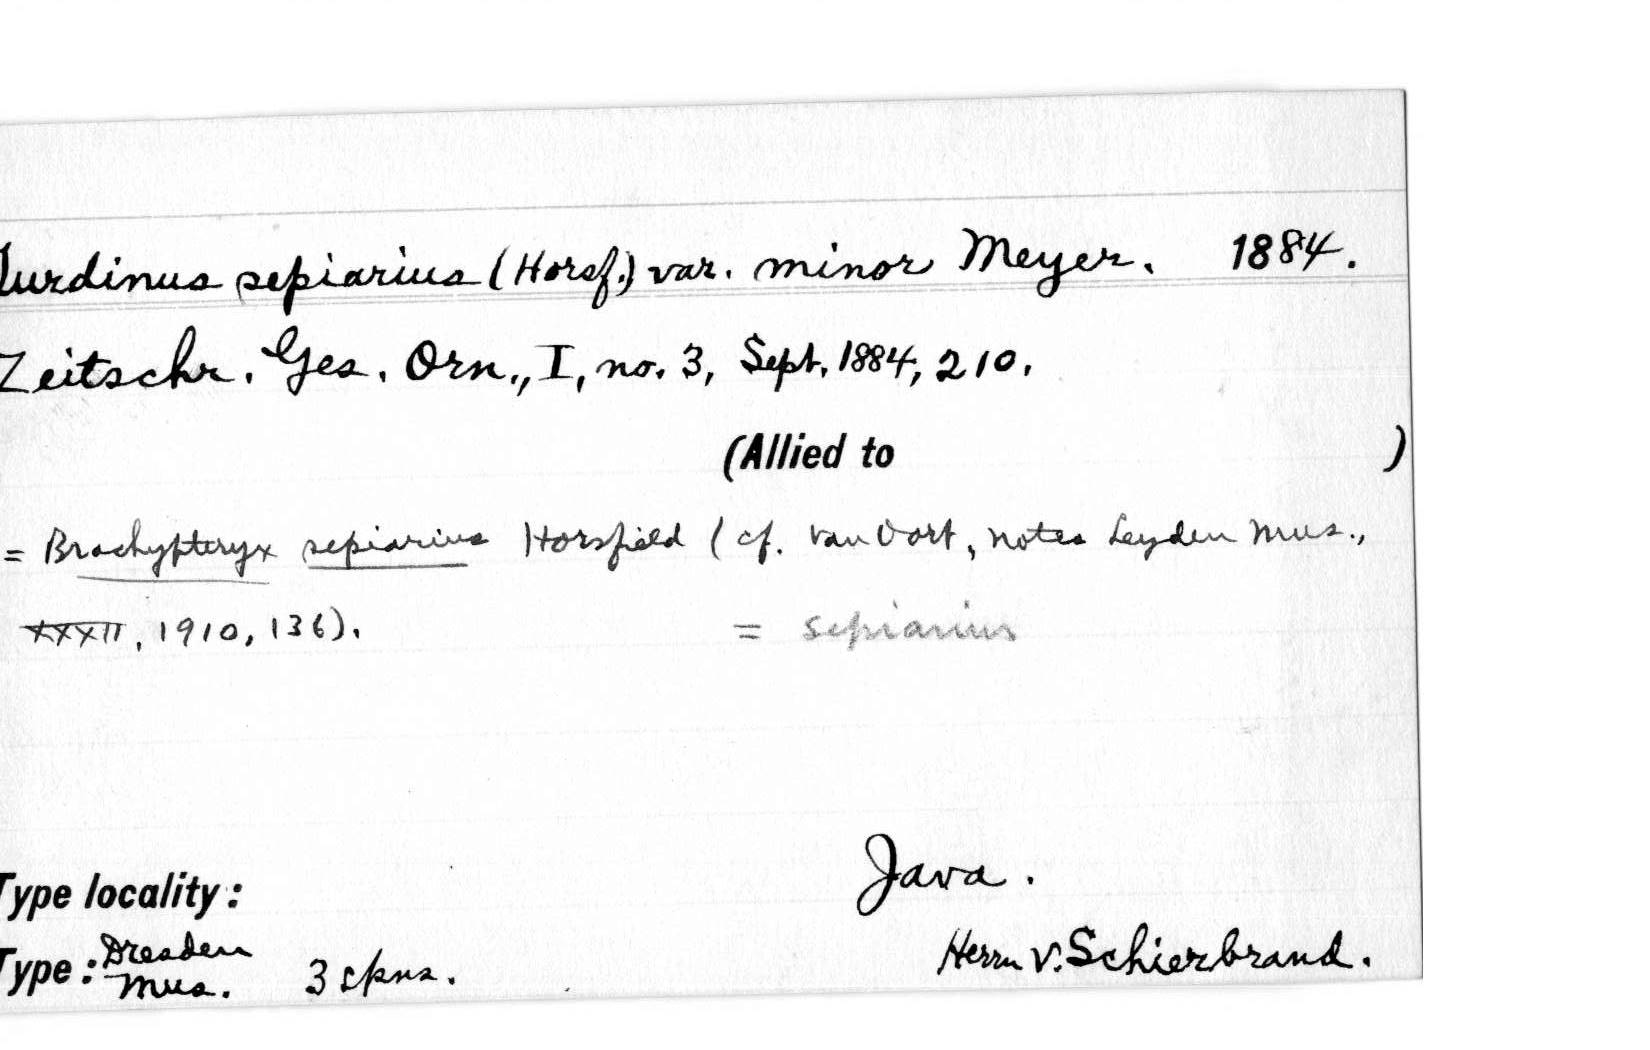 Turdinus sepiarius (Horsf.) var. minor Meyer. 1884.
Zeitschr. Ges. Orn., I, no. 3, Sept. 1884, 210.
(Allied to )
= Brachypteryx sepiarius Horsfield (cf. van Oort, notes Leyden Mus.,
XXXII, 1910, 136). = sepiarius
Type locality: Java.
Type: Dresden Mus. 3 spns. Herrn v. Schierbrand.